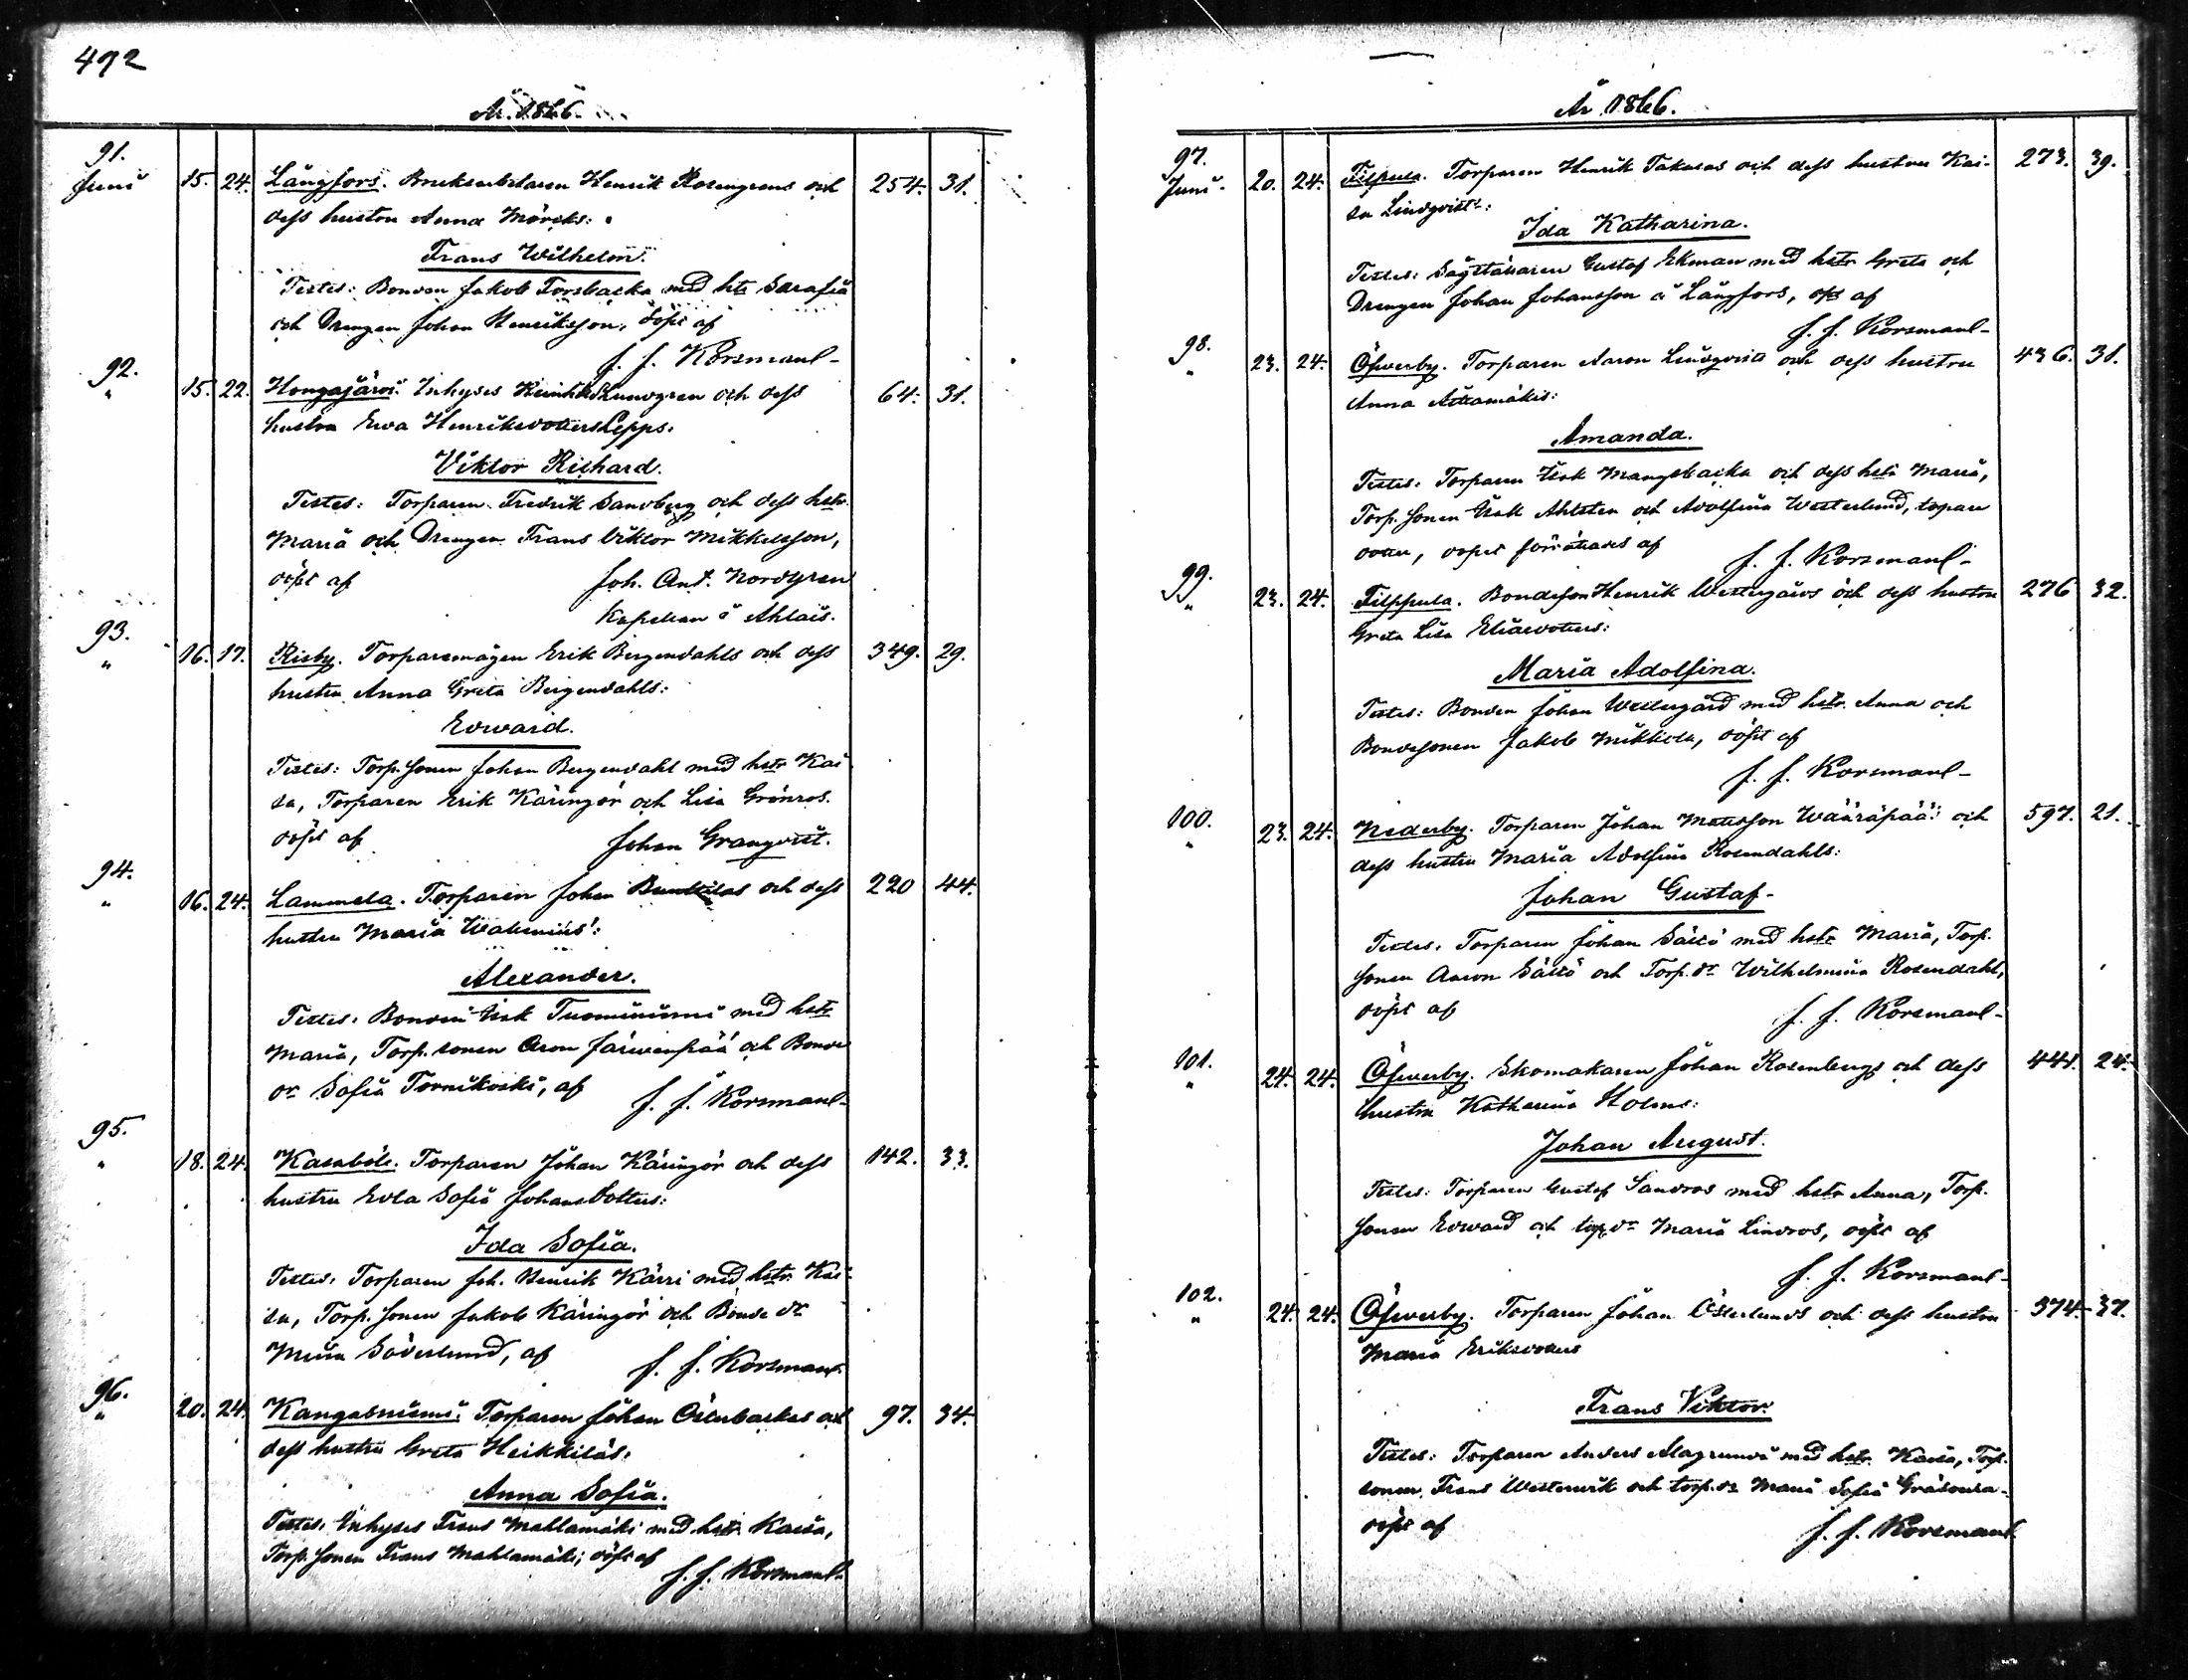 492
År 1866.
91.
Juni 15. 24. Långfors. Bruksarbetaren Henrik Rosengrens och 254. 31.
dess hustru Anna Mörcks:
Frans Wilhelm.
Testes: Bonden Jakob Torsbacka med hst Sarafia
och Drengen Johan Henriksson, döpt af
J. J. Korsman
92.
" 15. 22. Hongajärvi. Inhyses Lundgren och dess 64. 31.
hustru Ewa Henriksdotters Lepps.
Viktor Richard.
Testes: Torparen Fredrik Sandberg och dess hstr.
Maria och Drengen Frans Viktor Mikkelsson,
döpt af Joh. Ant. Nordgren
Kapellan i Ahlais.
93.
" 16. 17. Kisby. Torparemågen Erik Bergendahls och dess 349. 29.
hustru Anna Greta Bergendahls:
Edvard.
Testes: Torp. sonen Johan Bergendahl med hstr Kai-
sa, Torparen Erik Käringör och Lisa Grönros.
döpt af Johan Granqvist.
94.
" 16. 24. Lammela. Torparen Johan och dess 220 44.
hustru Maria Walenius':
Alexander.
Testes: Bonden Isak Tuominiemi med hstr
Maria, Torp. sonen Aron Järwenpää och Bonde
dr Sofia Tornikoski, af J. J. Korsman
95.
" 18. 24. Kasaböle. Torparen Johan Käringör och dess 142. 33.
hustru Evla Sofia Johansdotters:
Ida Sofia.
Testes: Torparen Joh. Henrik Kärri med hstr. Kai-
sa, Torp. sonen Jakob Käringör och Bonde dr
Mina Söderlund, af J. J. Korsman
96.
" 20. 24. Kangasniemi. Torparen Johan Österbackas och 97. 34.
dess hustru Greta Heikkiläs:
Anna Sofia.
Testes: Inhyses Frans Mahlamäki med hstr Kaisa,
Torp. sonen Frans Mahlamäki; döpt af J. J. Korsman
År 1866.
97.
Juni 20. 24. Filppula. Torparen Henrik Takalas och dess hustru Kai- 273. 39.
sa Lindqvists:
Ida Katharina.
Testes: Sågställaren Gustaf Ekman med hstr Greta och
Drengen Johan Johansson å Långfors, af
J. J. Korsman
98.
" 23. 24. Öfwerby. Torparen Aaron Lindqvists och dess hustru 436. 31.
Anna
Amanda.
Testes: Torparen Isak Mangsbacka och dess hstr Maria,
Torp. sonen Isak Ahlsten och Adolfina Westerlund, torpare
dotter, döpt af J. J. Korsman
99.
" 23. 24. Filppula. Bondeson Henrik Westergårds och dess hustru 276 32.
Greta Lisa Eliaedotters:
Maria Adolfina.
Testes: Bonden Johan Westergård med hstr. Anna och
Bondesonen Jakob Mikkola, döpt af
J. J. Korsman
100.
" 23. 24. Nederby. Torparen Johan Matsson Wääräpää: och 597. 21.
dess hustru Maria Adolfina Rosendahls:
Johan Gustaf
Testes: Torparen Johan Säilö med hstr Maria, Torp.
sonen Aaron Säilö och Torp. dr Wilhelmina Rosendahl,
döpt af J. J. Korsman
101.
" 24. 24. Öfwerby. Skomakaren Johan Rosenbergs och dess 441. 24.
hustru Katharina Holms:
Johan August.
Testes: Torparen Gustaf Sandros med hstr Anna, Torp.
sonen Edvard och torp. dr Maria Lindros, döpt af
J. J. Korsman
102.
" 24. 24. Öfwerby. Torparen Johan Österlunds och dess hustru 574. 37.
Maria Eriksdotters
Frans Viktor.
Testes: Torparen Anders Alagrundi med hstr. Kaisa, Torp.
sonen Frans Westervik och torp. dr Maria Sofia
döpt af J. J. Korsman